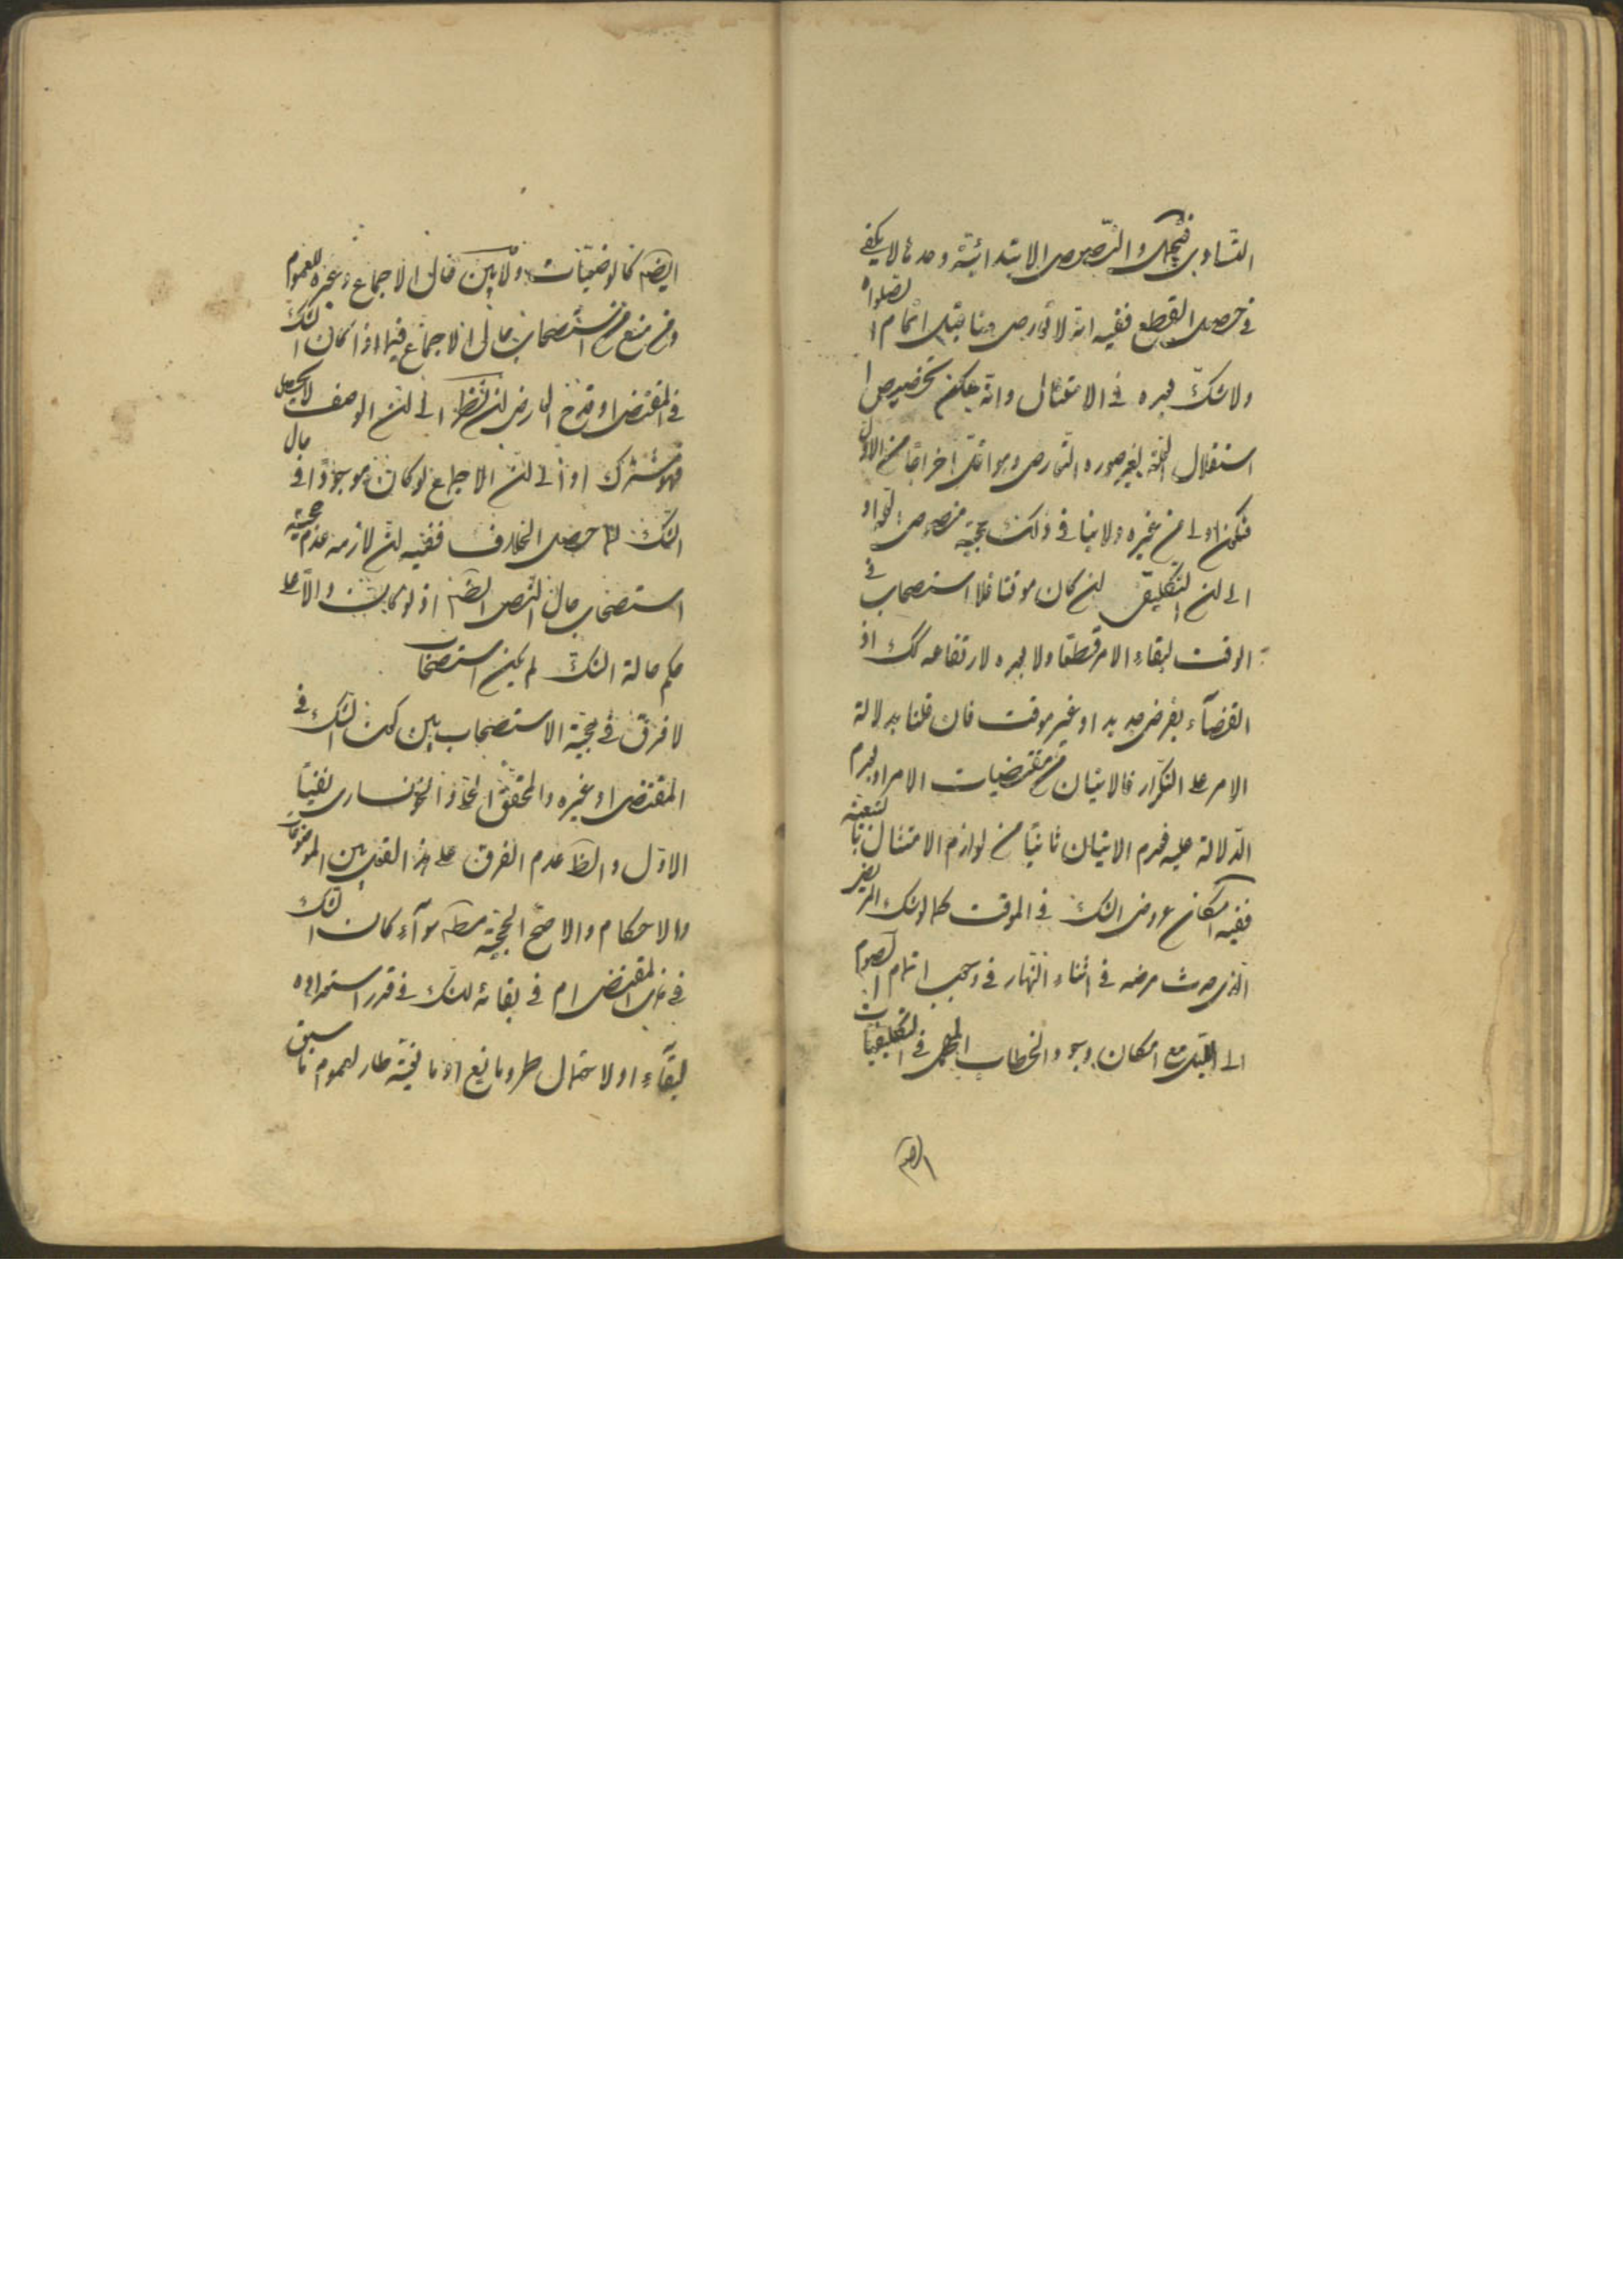 التساوى فتجهل والنصوص الابتدائية وحدها لا يكفى
فى حصول القطع ففيه انه لا تعارض هنا قبل اتمام الصلوة
ولا شك بعده فى الامتثال وانه يمكن تخصيص
استقلال البعدية بغير صورة التعارض وهو اقل اخراجا من الاول
فيكون اولى من غيره ولا ينافى ذلك حجية منصوص او
الى ان التكليف ان كان موقتا فلا استصحاب فى
الوقت لبقاء الامر قطعا ولا بعده لارتفاعه كك اذ
القضاء بفرض جديد او غير موقت فان قلنا بدلالة
الامر على التكرار فالاتيان من مقتضيات الامر او بعدم
الدلالة عليه فعدم الاتيان ثانيا من لوازم الامتثال
ففيه امكان عروض الشك فى الموقت كما لو شك المريض
الذى حدث مرضه فى اثناء النهار فى وجوب اتمام الصوم
الى الليل مع امكان وجود الخطاب المجمل فى التكليفيات
ايضا
ايضا كالوضعيات ولا بين حال الاجماع وغيره للعموم
ومن منع من استصحاب حال الاجماع فيما اذا كان الشك
فى المقتضى او قدح العارض ان نظر الى ان الوصف لا يحصل
فهو مشترك او الى ان الاجماع لو كان موجودا فى حال
الشك لما حصل الخلاف ففيه ان لازمه عدم حجية
استصحاب حال النص ايضا اذ لو كانت دالا على
حكم حالة الشك لم يكن استصحاب
لا فرق فى حجية الاستصحاب بين كون الشك فى
المقتضى او غيره والمحقق الخوانسارى نفيا
الاول والظ عدم الفرق على هذا القول بين الموضوعات
والاحكام والاصح الحجية مطلقا سواء كان الشك
فى المقتضى ام فى بقائه للشك فى قدر استعداده
لبقاء او لاحتمال طرو مانع او مانعية طار لعموم ما سبق